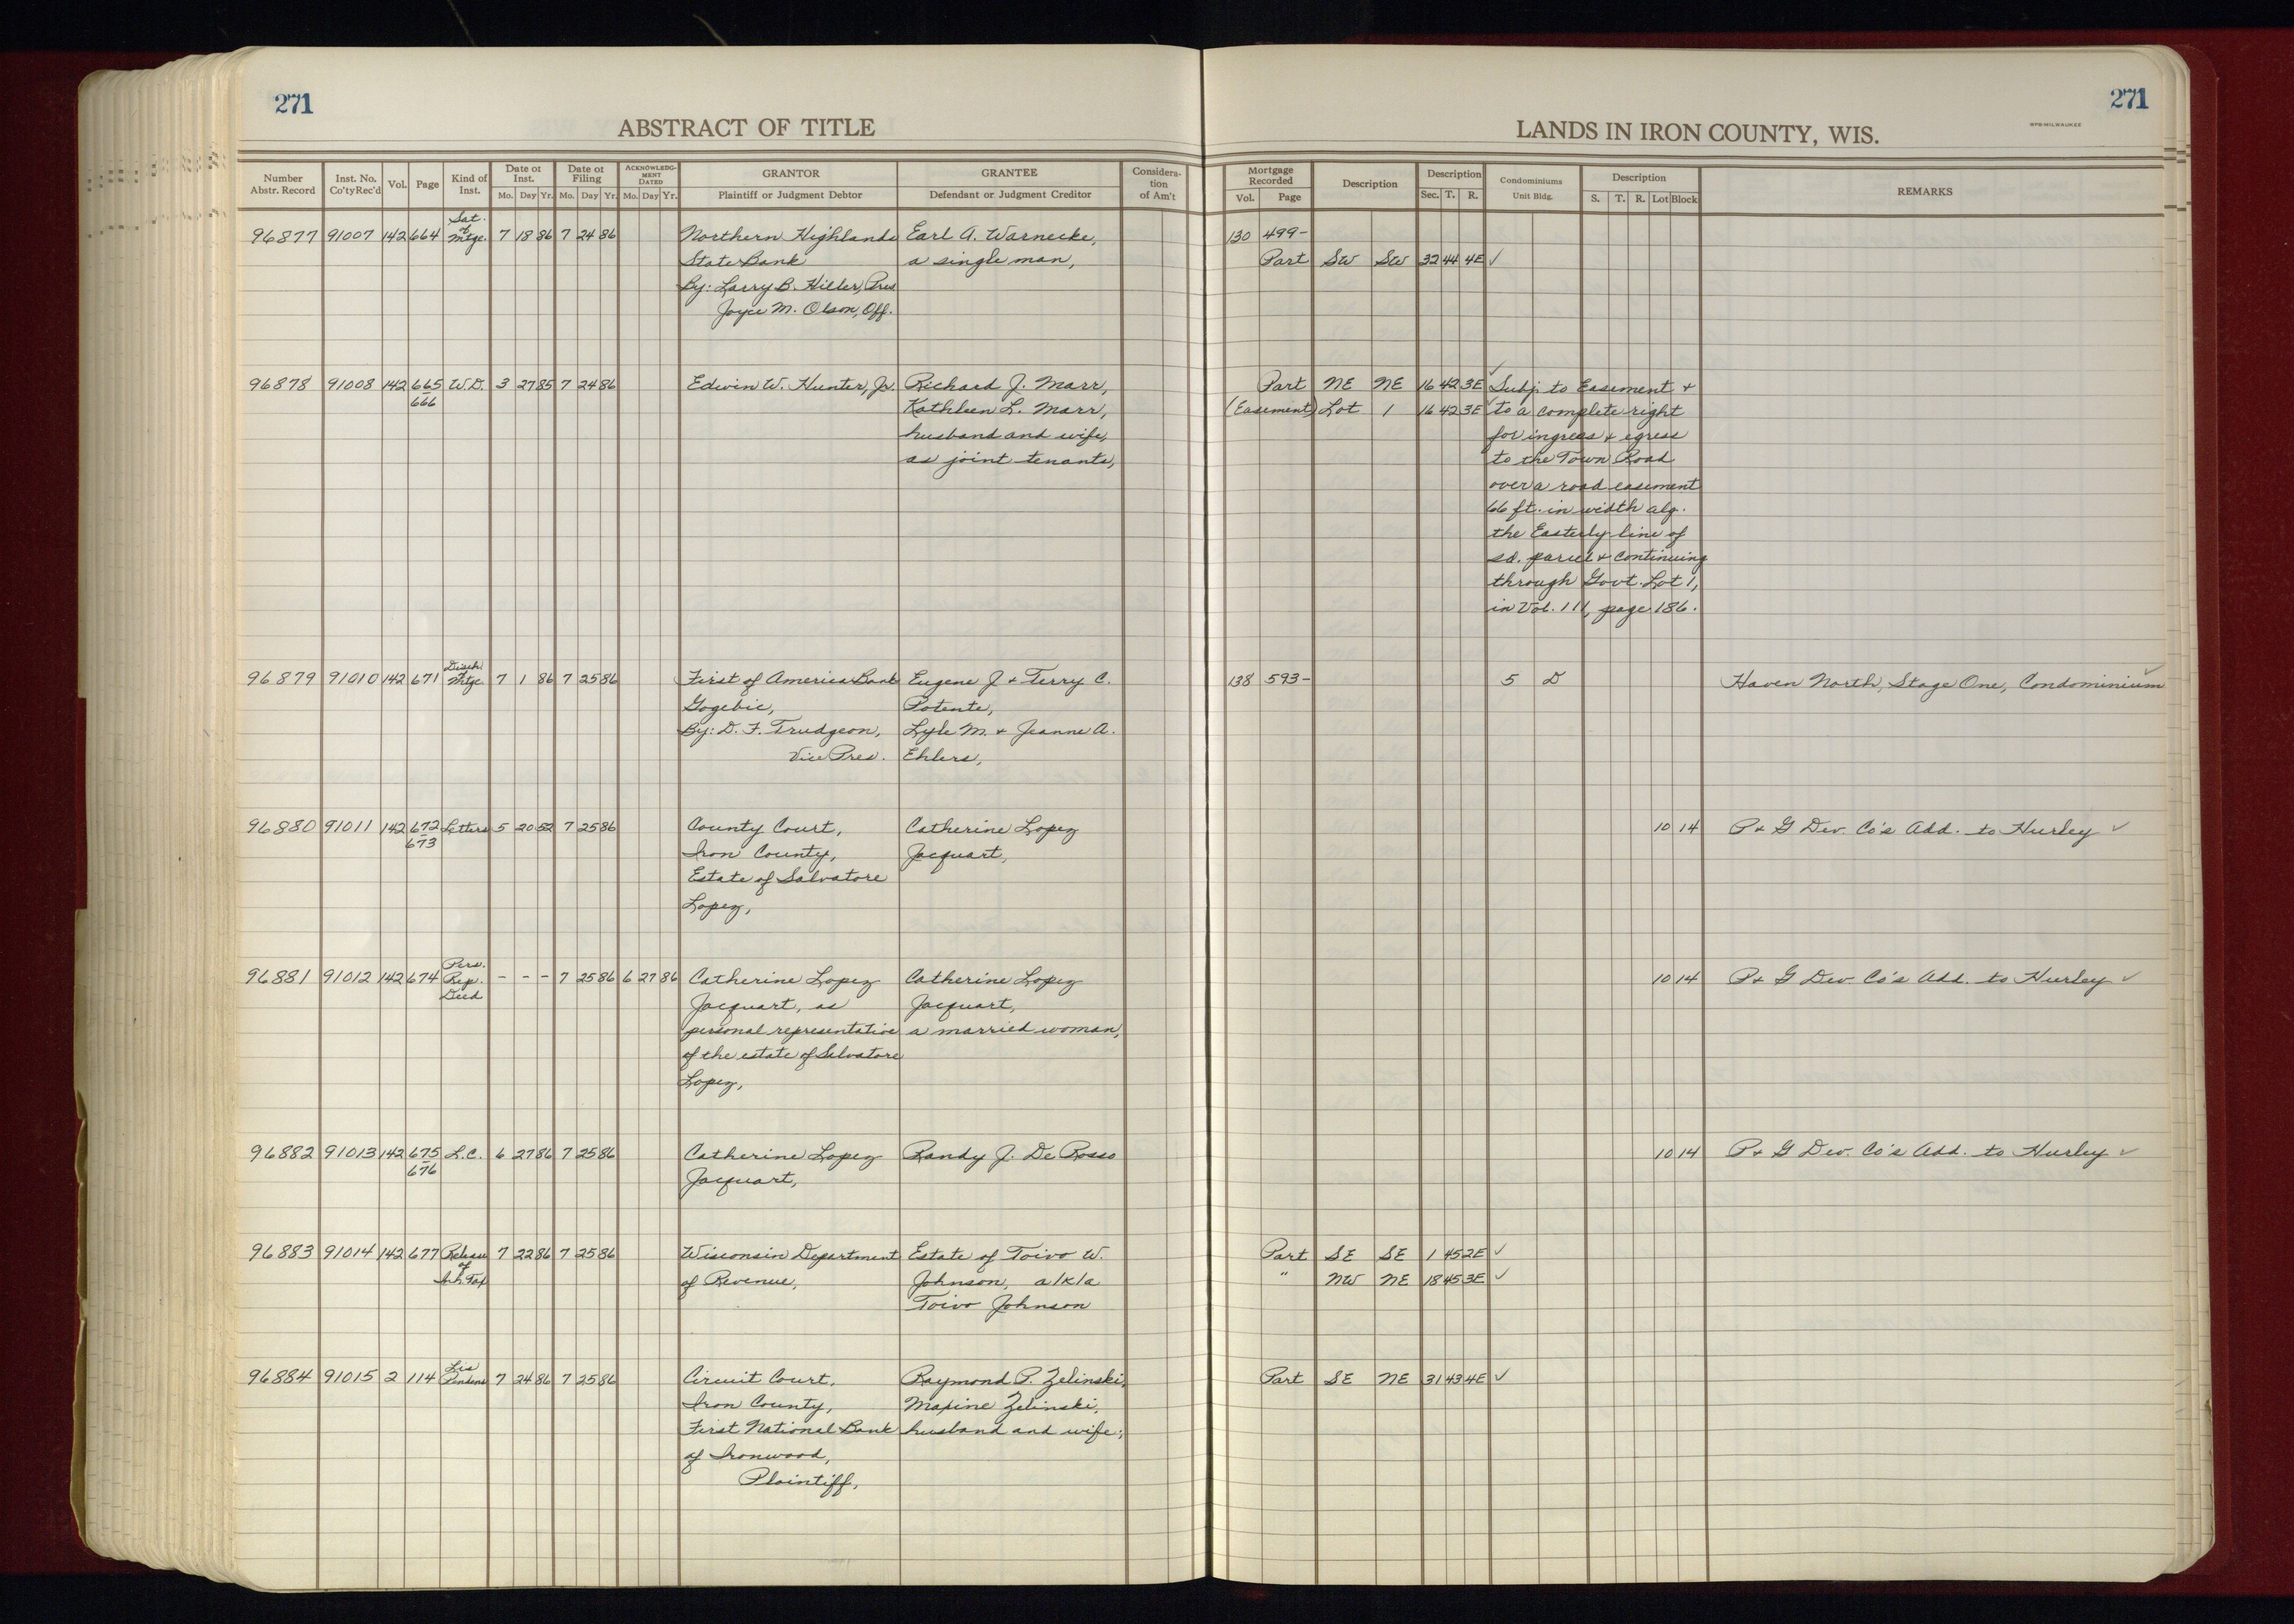 271
271
ABSTRACT OF TITLE
LANDS IN IRON COUNTY, WIS.
WPB-MILWAUKEE
Number Abstr. Record Inst. No. Co'ty Rec'd Vol. Page Kind of Inst. Date of Inst. Mo. Day Yr. Date of Filing Mo. Day Yr. ACKNOWLEDG-MENT DATED Mo. Day Yr. GRANTOR Plaintiff or Judgment Debtor GRANTEE Defendant or Judgment Creditor Considera-tion of Am't Mortgage Recorded Vol. Page Description Description Sec. T. R. Condominiums Unit Bldg. Description S. T. R. Lot Block REMARKS
Sat. of
96877 91007 142 664 Mtge. 7 18 86 7 24 86 Northern Highlands Earl A. Warnecke, 130 499-
State Bank a single man, Part SW SW 32 44 4E ✓
By: Larry B. Hiller, Pres
Joyce M. Olson, Off.
96878 91008 142 665 W.D. 3 27 85 7 24 86 Edwin W. Hunter, Jr. Richard J. Marr, Part NE NE 16 42 3E ✓ Subj. to Easement +
666 Kathleen L. Marr, (Easement) Lot 1 16 42 3E ✓ to a complete right
husband and wife, for ingress + egress
as joint tenants, to the Town Road
over a road easement
66 ft. in width alg.
the Easterly line of
sd. parcel + continuing
through Govt. Lot 1,
in Vol. 111, page 186.
Disch. of
96879 91010 142 671 Mtge. 7 1 86 7 25 86 First of America Bank Eugene J. + Terry C. 138 593- 5 D Haven North, Stage One, Condominium ✓
Gogebic, Potente,
By: D. F. Trudgeon, Lyle M. + Jeanne A.
Vice Pres. Ehlers,
96880 91011 142 672 Letters 5 20 52 7 25 86 County Court, Catherine Lopez 10 14 P + G Dev. Co's Add. to Hurley ✓
673 Iron County, Jacquart,
Estate of Salvatore
Lopez,
Pers.
96881 91012 142 674 Rep. - - - 7 25 86 6 27 86 Catherine Lopez Catherine Lopez 10 14 P + G Dev. Co's Add. to Hurley ✓
Deed Jacquart, as Jacquart,
personal representative a married woman,
of the estate of Salvatore
Lopez,
96882 91013 142 675 L.C. 6 27 86 7 25 86 Catherine Lopez Randy J. De Rosso 10 14 P + G Dev. Co's Add. to Hurley ✓
676 Jacquart,
96883 91014 142 677 Release 7 22 86 7 25 86 Wisconsin Department Estate of Toivo W. Part SE SE 1 45 2E ✓
of Inh. Tax of Revenue, Johnson, a/k/a " NW NE 18 45 3E ✓
Toivo Johnson
Lis
96884 91015 2 114 Pendens 7 24 86 7 25 86 Circuit Court, Raymond P. Zelinski, Part SE NE 31 43 4E ✓
Iron County, Maxine Zelinski,
First National Bank husband and wife,
of Ironwood,
Plaintiff,